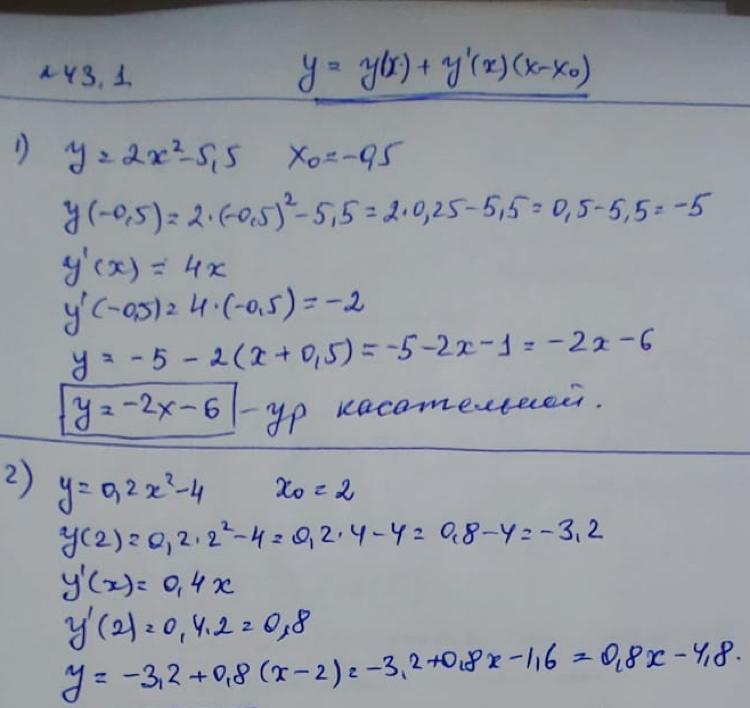 №43.1 y = y(x) + y'(x)(x-x₀)
1) y = 2x²-5,5 x₀=-0,5
y(-0,5) = 2·(-0,5)²-5,5 = 2·0,25-5,5 = 0,5-5,5 = -5
y'(x) = 4x
y'(-0,5) = 4·(-0,5) = -2
y = -5 - 2(x+0,5) = -5-2x-1 = -2x-6
y = -2x-6 - ур касательной.
2) y = 0,2x²-4 x₀ = 2
y(2) = 0,2·2²-4 = 0,2·4-4 = 0,8-4 = -3,2
y'(x) = 0,4x
y'(2) = 0,4·2 = 0,8
y = -3,2+0,8(x-2) = -3,2+0,8x-1,6 = 0,8x-4,8.